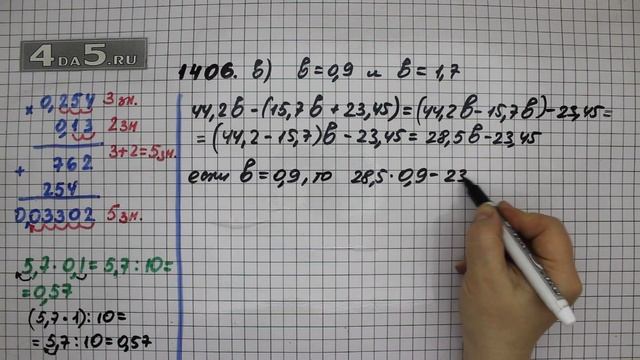 4DA5.RU
0,254 3 зн.
× 0,13 2 зн
3+2=5 зн.
762
+ 254
0,03302 5 зн.
5,7·0,1=5,7:10=
=0,57
(5,7·1):10=
=5,7:10=0,57
1406. в) в=0,9 и в=1,7
44,2в-(15,7в+23,45)=(44,2в-15,7в)-23,45=
=(44,2-15,7)в-23,45=28,5в-23,45
если в=0,9, то 28,5·0,9-23